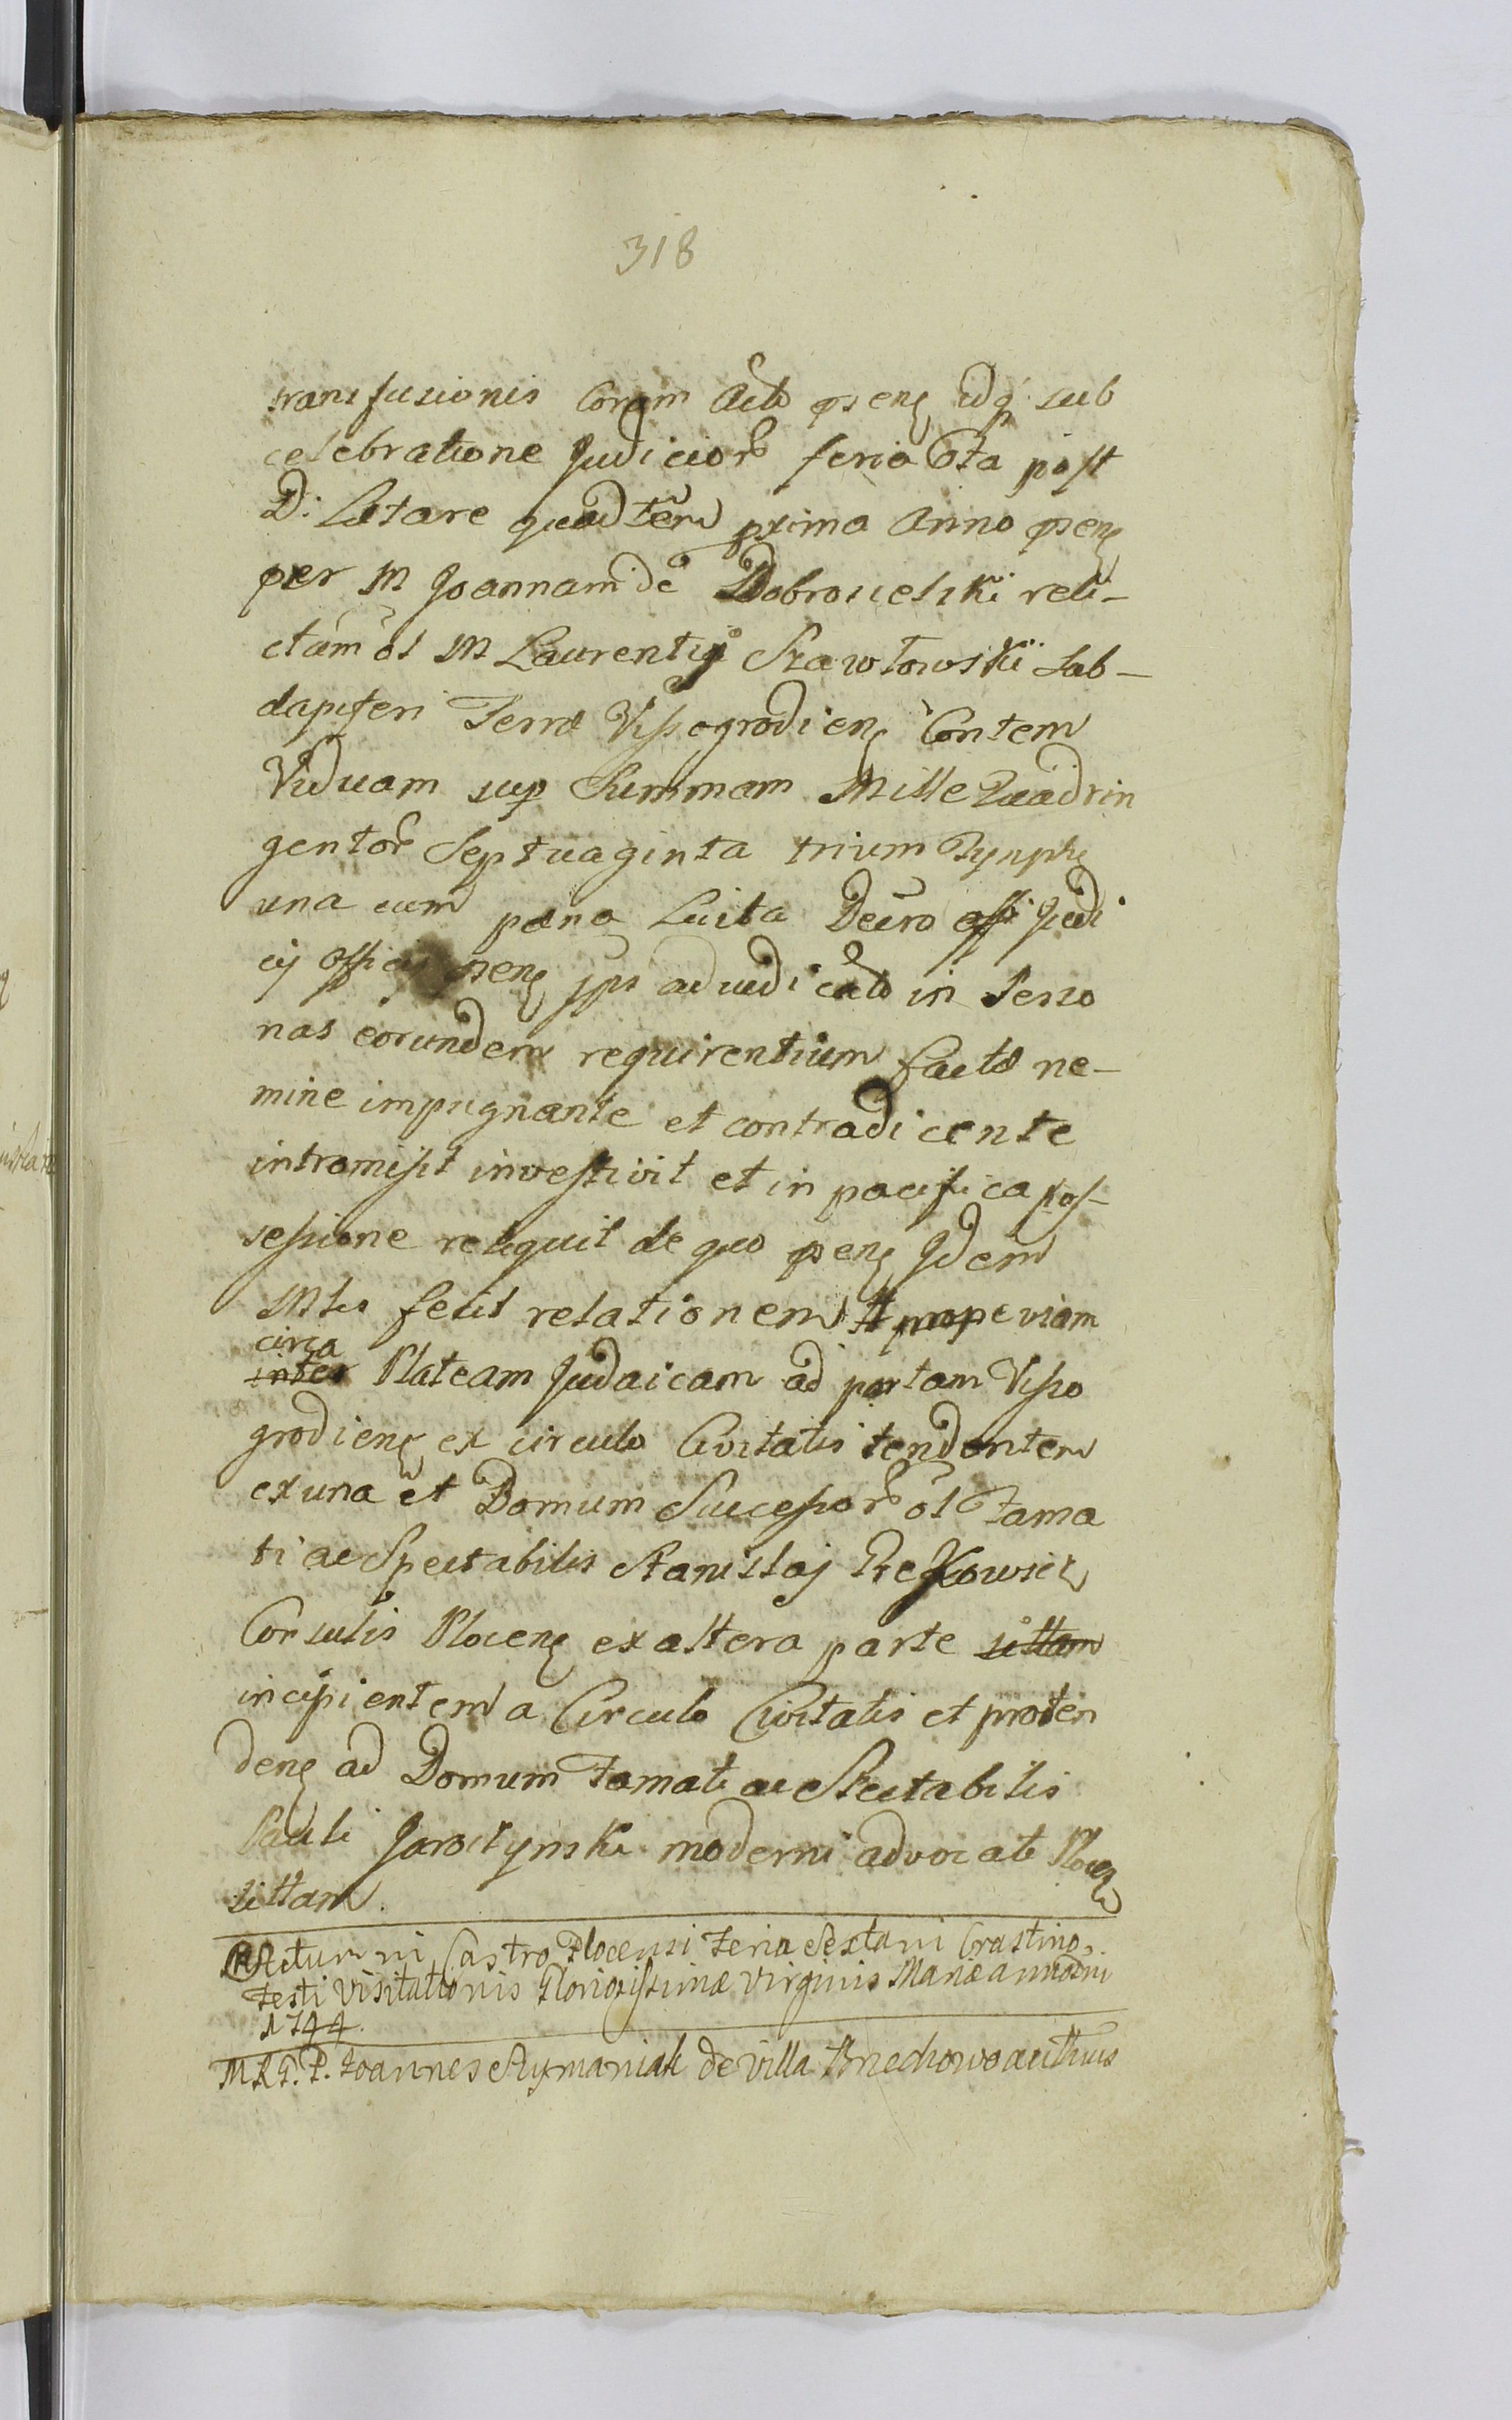 318
transfusionis Coram Actis pseng idq sub
celebratione Judicior feria 6ta post
D: Lætare quadtem prima Anno pseng
per M Joannam de Dobrosielski reli-
ctam ol M Laurentij Szawłowski Sub-
dapiferi Terræ Vissogrodieng Contem
Viduam sup Summam Mille Quadrin
gentor Septuaginta trium Tynph
una cum pæna Luita Decro offi Judi
cij Officij pseng jps adiudicato in Perso
nas eorundem requirentium facto ne-
mine impugnante et contradicente
intromisit investivit et in pacifica pos-
sessione reliquit de quo pseng Jdem
Mlis fecit relationem # prope viam
circa
inter Plateam Judaicam ad portam Visso
grodieng ex circulo Civitatis tendentem
ex una et Domum Successor ol Fama
ti ac Spectabilis Stanislaj
Consulis Ploceng ex altera parte sittam
incipientem a Circulo Civitatis et proten
deng ad Domum Famati ac Spectabilis
Pauli Jarostynski moderni advocati Ploceng
sittam.
Actum in Castro Plocensi Feria Sexta in Crastino
Festi Visitationis Gloriosissimæ Virginis Mariæ anno Dni
1744.
MRT.P. Joannes Szymaniak de Villa Brzechowo authus